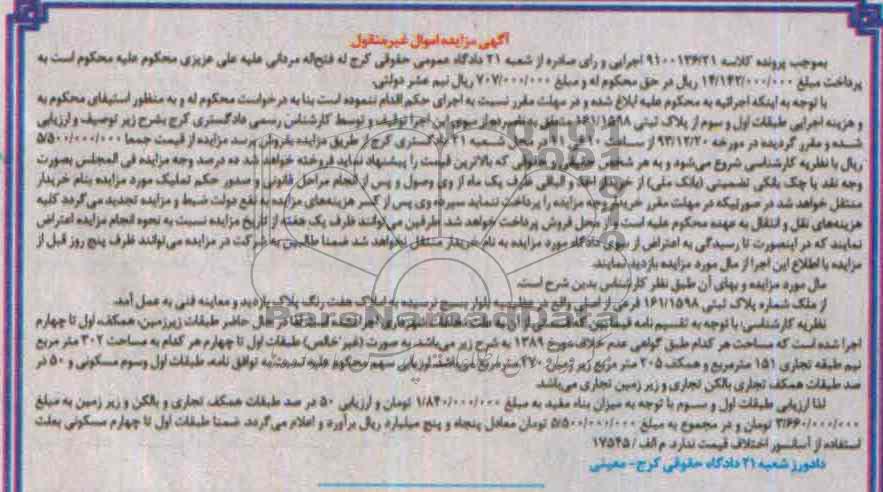 آگهی مزایده اموال غیرمنقول
بموجب پرونده کلاسه ۹۱۰۰۱۳۶/۲۱ اجرایی و رای صادره از شعبه ۲۱ دادگاه عمومی حقوقی کرج له فتح‌اله مردانی علیه علی عزیزی محکوم علیه محکوم است به
پرداخت مبلغ ۱۴/۱۴۲/۰۰۰/۰۰۰ ریال در حق محکوم له و مبلغ ۷۰۷/۰۰۰/۰۰۰ ریال نیم عشر دولتی.
با توجه به اینکه اجرائیه به محکوم علیه ابلاغ شده و در مهلت مقرر نسبت به اجرای حکم اقدام ننموده است بنا به درخواست محکوم له و به منظور استیفای محکوم به
و هزینه اجرایی طبقات اول و سوم از پلاک ثبتی ۱۶۱/۱۵۹۸ متعلق به نامبرده از سوی این اجرا توقیف و توسط کارشناس رسمی دادگستری کرج بشرح زیر توصیف و ارزیابی
شده و مقرر گردیده در مورخه ۹۳/۱۲/۲۰ از ساعت در محل شعبه ۲۱ دادگستری کرج از طریق مزایده بفروش برسد مزایده از قیمت جمعا ۵/۵۰۰/۰۰۰/۰۰۰
ریال با نظریه کارشناسی شروع می‌شود و به هر شخص حقیقی و حقوقی که بالاترین قیمت را پیشنهاد نماید فروخته خواهد شد ده درصد وجه مزایده فی المجلس بصورت
وجه نقد یا چک بانکی تضمینی (بانک ملی) از خریدار اخذ و الباقی ظرف یک ماه از وی وصول و پس از انجام مراحل قانونی و صدور حکم تملیک مورد مزایده بنام خریدار
منتقل خواهد شد در صورتیکه در مهلت مقرر خریدار وجه مزایده را پرداخت ننماید سپرده وی پس از کسر هزینه‌های مزایده به نفع دولت ضبط و مزایده تجدید می‌گردد کلیه
هزینه‌های نقل و انتقال به عهده محکوم علیه است از محل فروش پرداخت خواهد شد. طرفین می‌توانند ظرف یک هفته از تاریخ مزایده نسبت به نحوه انجام مزایده اعتراض
نمایند که در اینصورت تا رسیدگی به اعتراض از سوی دادگاه مورد مزایده به نام خریدار منتقل نخواهد شد ضمنا طالبین به شرکت در مزایده می‌توانند ظرف پنج روز قبل از
مزایده با اطلاع این اجرا از مال مورد مزایده بازدید نمایند.
مال مورد مزایده و بهای آن طبق نظر کارشناس بدین شرح است.
از ملک شماره پلاک ثبتی ۱۶۱/۱۵۹۸ فرعی از اصلی واقع در بلوار بسیج نرسیده به املاک هفت رنگ پلاک بازدید و معاینه فنی به عمل آمد.
نظریه کارشناسی: با توجه به تقسیم نامه فیمابین که قسمتی از آن به علت تخلفات شهرداری اجرا نشده است لذا در حال حاضر طبقات زیرزمین، همکف، اول تا چهارم
اجرا شده است که مساحت هر کدام طبق گواهی عدم خلاف مورخ ۱۳۸۹ به شرح زیر می‌باشد. به صورت (غیر خالص) طبقات اول تا چهارم هر کدام به مساحت ۲۰۲ متر مربع
نیم طبقه تجاری ۱۵۱ مترمربع و همکف ۲۰۵ متر مربع زیرزمین ۴۷۰ مترمربع می‌باشد. ارزیابی سهم محکوم علیه نسبت به توافق نامه، طبقات اول وسوم مسکونی و ۵۰ در
صد طبقات همکف تجاری بالکن تجاری و زیر زمین تجاری می‌باشد.
لذا ارزیابی طبقات اول و سوم با توجه به میزان بناء مفید به مبلغ ۱/۸۴۰/۰۰۰/۰۰۰ تومان و ارزیابی ۵۰ در صد طبقات همکف تجاری و بالکن و زیر زمین به مبلغ
۳/۶۶۰/۰۰۰/۰۰۰ تومان و در مجموع به مبلغ ۵/۵۰۰/۰۰۰/۰۰۰ تومان معادل پنجاه و پنج میلیارد ریال برآورد و اعلام می‌گردد. ضمنا طبقات اول تا چهارم مسکونی بعلت
استفاده از آسانسور اختلاف قیمت ندارد. م الف / ۱۷۵۴۵
دادورز شعبه ۲۱ دادگاه حقوقی کرج - معینی
ParsNamadData